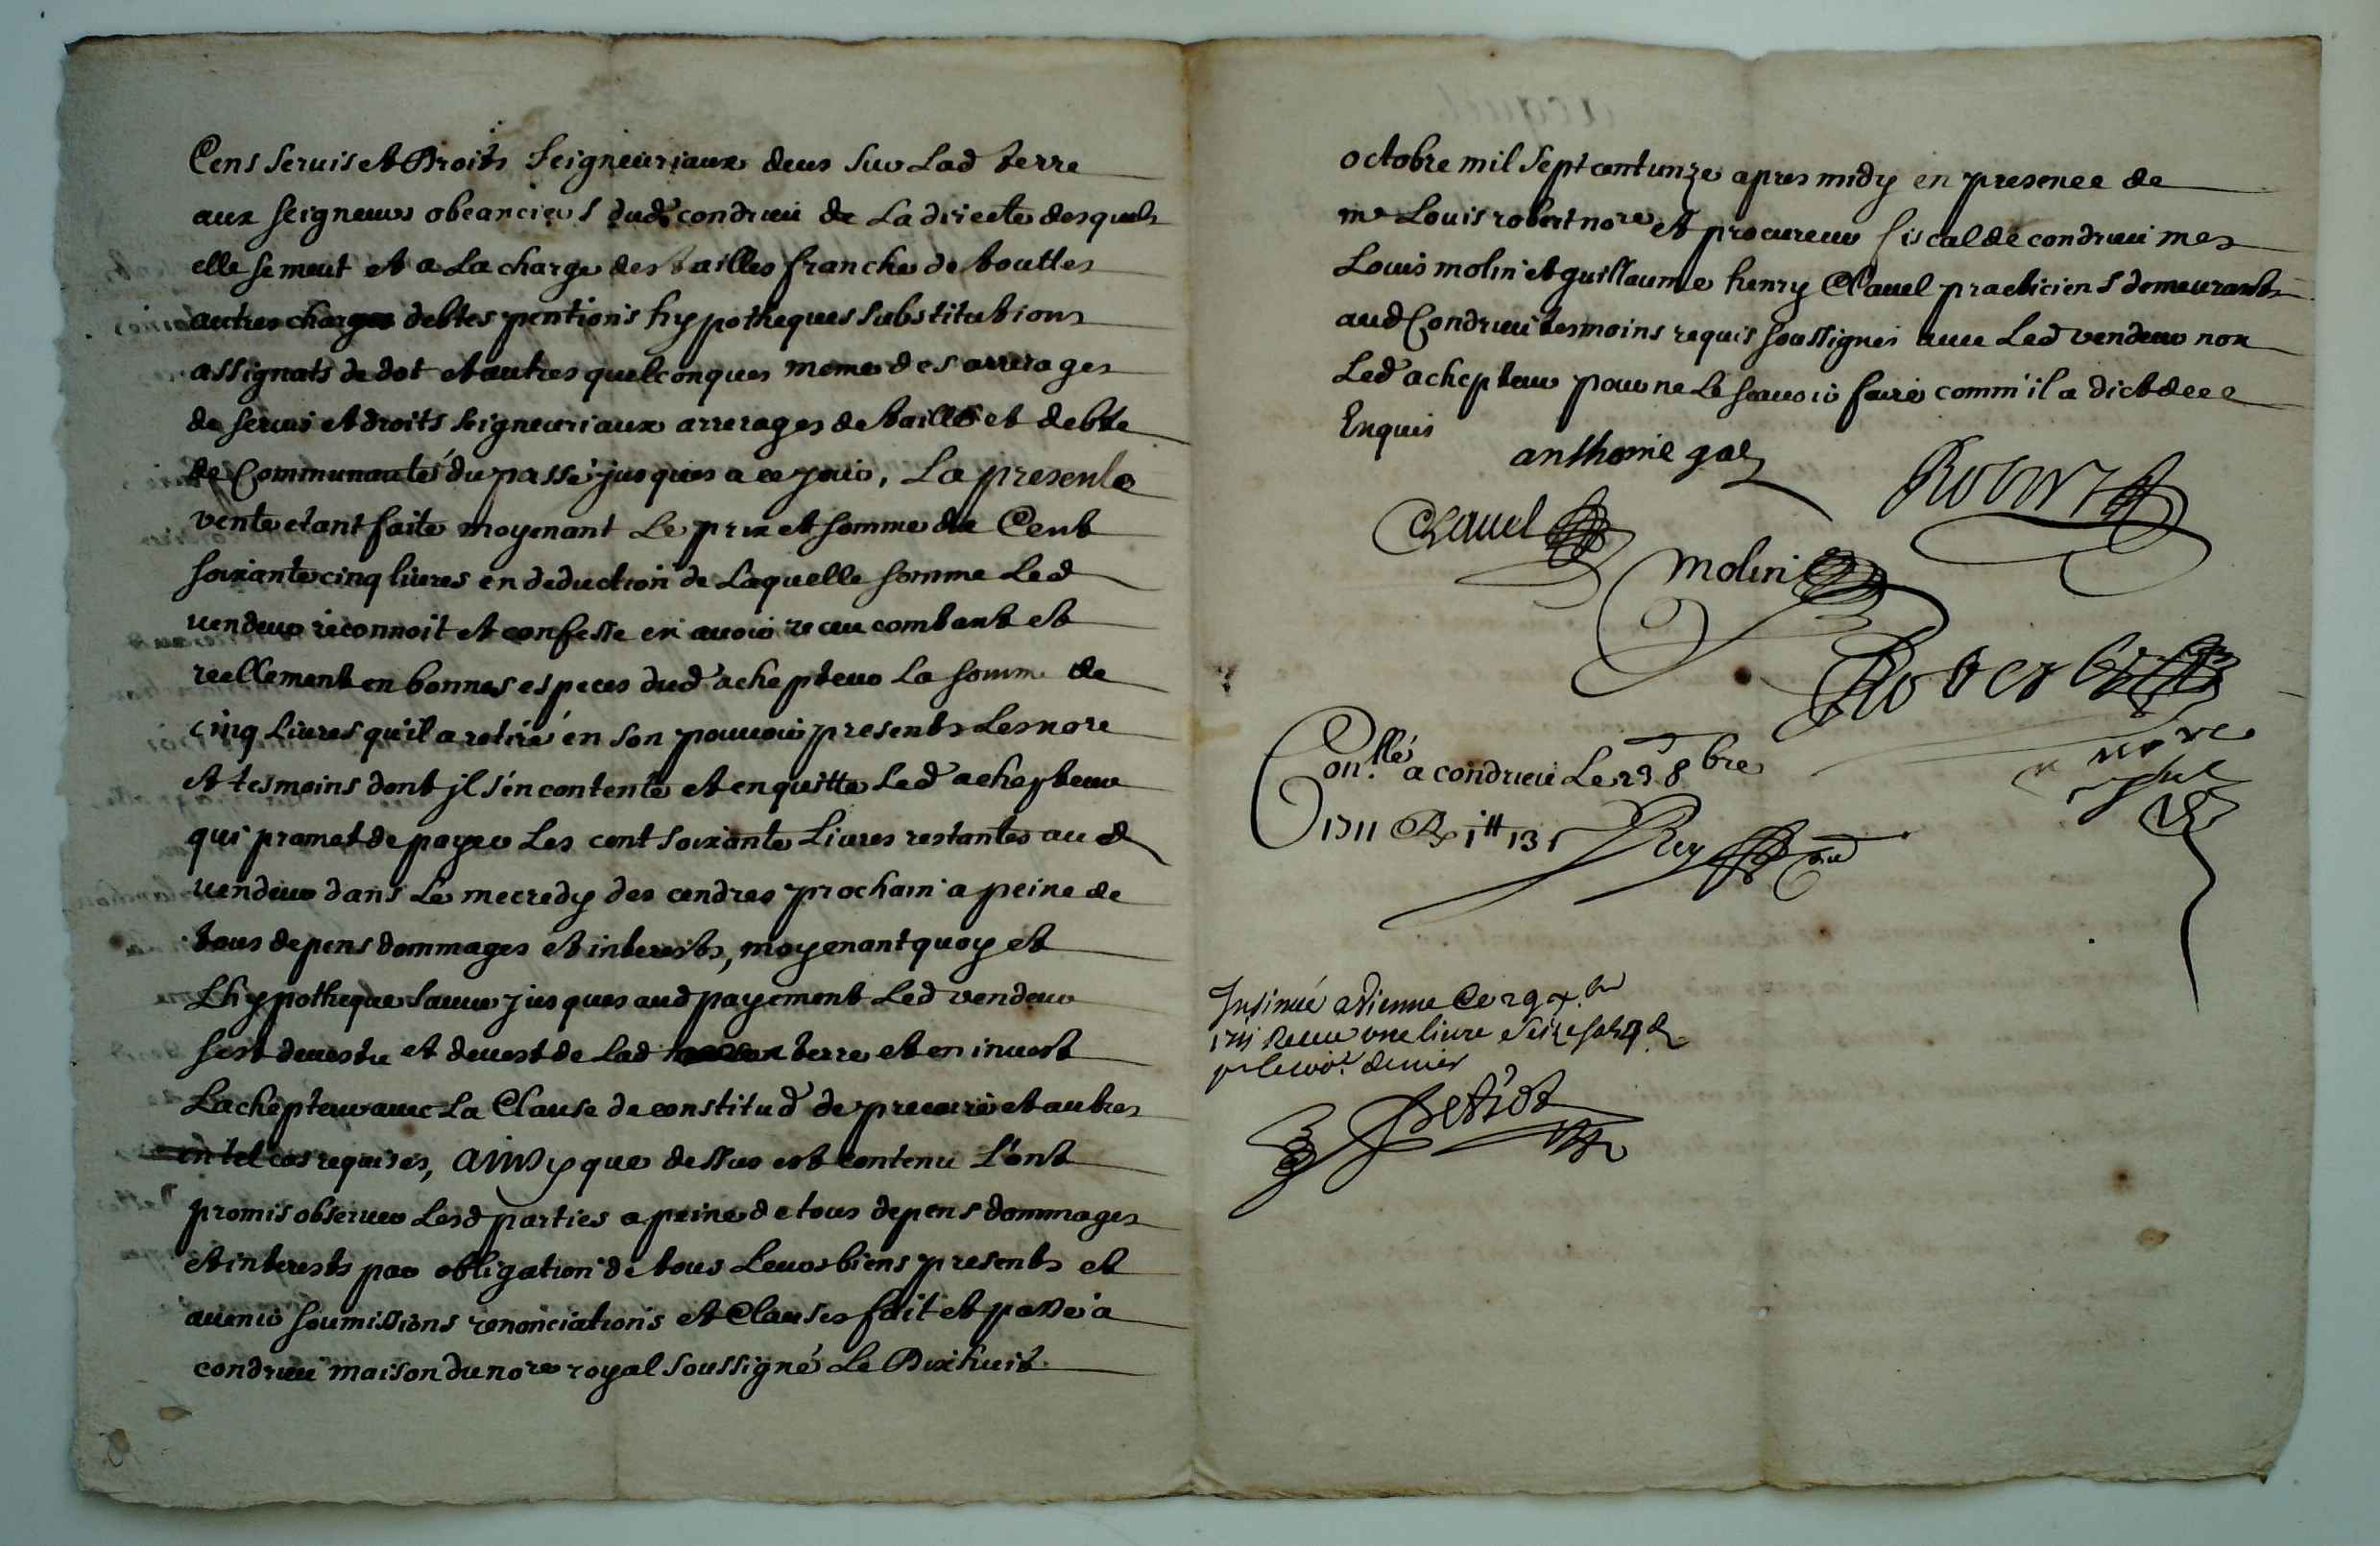 Cens Servis et Droits Seigneuriaux deus sur Lad terre
aux seigneurs obeanciers dud condrieu de La directe desquels
elle se meut et a La charge des tailles franche de touttes
autres charges debtes pentions hypotheques substitutions
assignats de dot et autres quelconques meme des arrerages
de servis et droits seigneuriaux arrerages de tailles et debte
de Communautés du passé jusques a ce jour, La presente
vente etant faite moyenant Le prix et somme de Cent
soixante cinq livres en deduction de Laquelle somme Led
vendeur reconnoit et confesse en avoir receu comtant et
reellement en bonnes especes dud achepteur La somme de
cinq Livres qu'il a retiré en son pouvoir presents Les nore
et tesmoins dont jl s'en contente et en quitte Led achepteur
qui promet de payer Les cent soixante Livres restantes aud
vendeur dans Le mecredy des cendres prochain a peine de
tous depens dommages et interests, moyenant quoy et
Lhypotheque sauve jusques aud payement Led vendeur
sest devestu et devest de Lad terre et en invest
Lachepteur avec La Clause de constitud de precaire et autres
en tel cas requises, ainsy que dessus est contenu L'ont
promis observer Lesd parties a peine de tous depens dommages
et interests par obligation de tous Leurs biens presents et
avenir soumissions renonciations et Clauses fait et passé a
condrieu maison du nore royal soussigné Le Dix huit
octobre mil sept cent unze apres midy en presence de
me Louis robert nore et procureur fiscal de condrieu mes
Louis molin et guillaume henry Clavel practiciens demeurants
aud Condrieu tesmoins requis soussignes avec Led vendeur non
Led achepteur pour ne Le scavoir faire comm'il a dict de ce
Enquis
anthoine gal
Robert
Clavel
molin
Robert
nore
Con.llé a condrieu Le 23 8bre
1711 R 1tt 13 s Rey
Insinué a Vienne Ce 29
1711 Receu une livre seize sols
denier